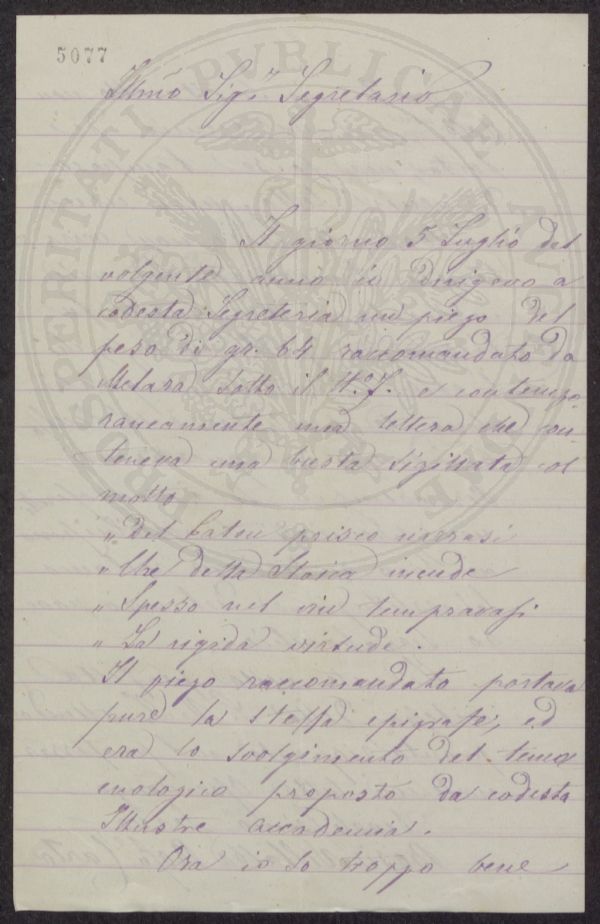 5077
Illmo Sig.r Segretario
Il giorno 5 Luglio del
volgente anno io dirigevo a
codesta Segreteria un piego del
peso di gr. 64 raccomandato da
Melara sotto il N.o 7. e contempo
raneamente una lettera che con
teneva una busta sigillata col
motto
„ Del Caton prisco narrasi
„ Che della Stoica incude
„ Spesso nel vin tempravasi
„ La rigida virtude.
Il piego raccomandato portava
pure la stessa epigrafe, ed
era lo svolgimento del tema
enologico proposto da codesta
Illustre Accademia.
Ora io so troppo bene